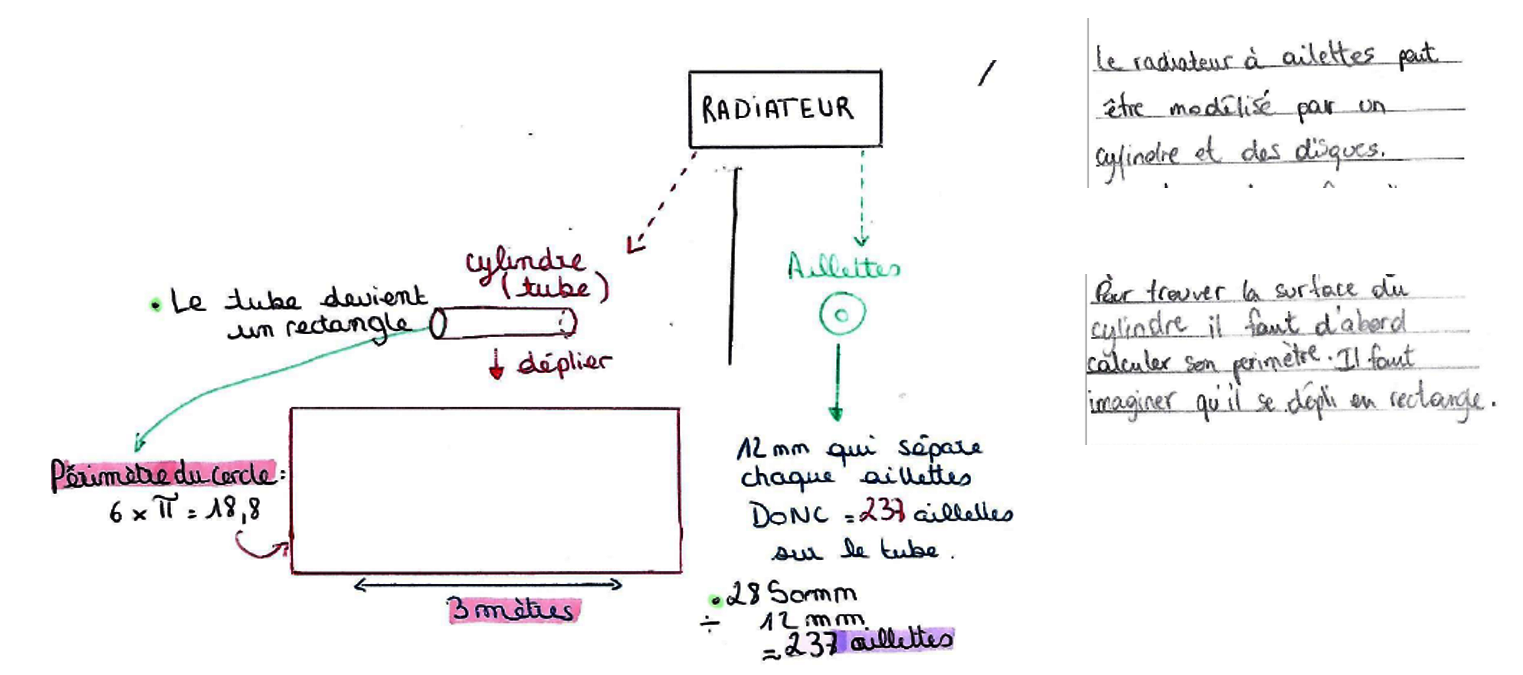 RADIATEUR
cylindre
(tube)
• Le tube devient
un rectangle
déplier
Périmètre du cercle :
6 × π = 18,8
3 mètres
Aillettes
12 mm qui sépare
chaque aillettes
DONC = 237 aillettes
sur le tube.
• 2850mm
÷ 12 mm
= 237 aillettes
le radiateur à ailettes peut
être modélisé par un
cylindre et des disques.
Pour trouver la surface du
cylindre il faut d'abord
calculer son perimètre. Il faut
imaginer qu'il se dépli en rectangle.